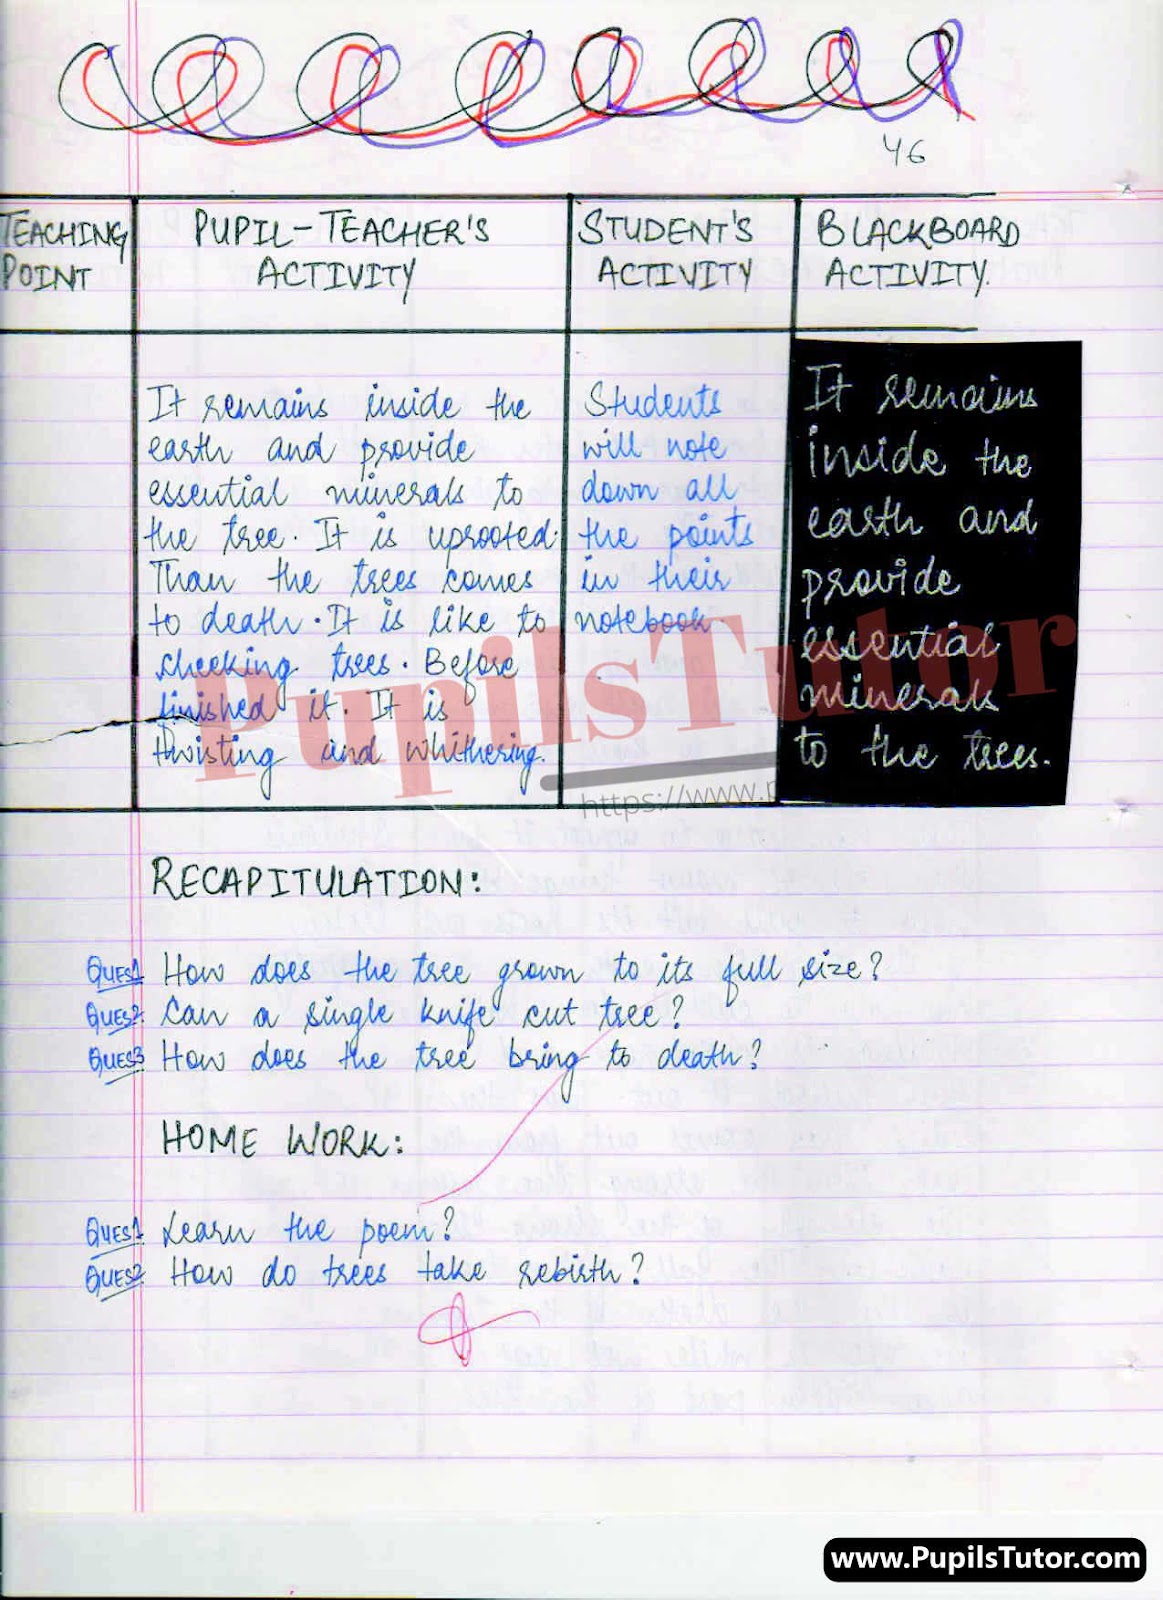 46
TEACHING POINT
PUPIL-TEACHER'S ACTIVITY
STUDENT'S ACTIVITY
BLACKBOARD ACTIVITY.
It remains inside the
earth and provide
essential minerals to
the tree. It is uprooted.
Than the trees comes
to death. It is like to
checking trees. Before
finished it. It is
thwisting and whithering.
Students
will note
down all
the points
in their
notebook.
It remains
inside the
earth and
provide
essential
minerals
to the trees.
PupilsTutor
https://www.p
RECAPITULATION:
QUES1 How does the tree grown to its full size?
QUES2. Can a single knife cut tree?
QUES3 How does the tree bring to death?
HOME WORK:
QUES1. Learn the poem?
QUES2. How do trees take rebirth?
www.PupilsTutor.com